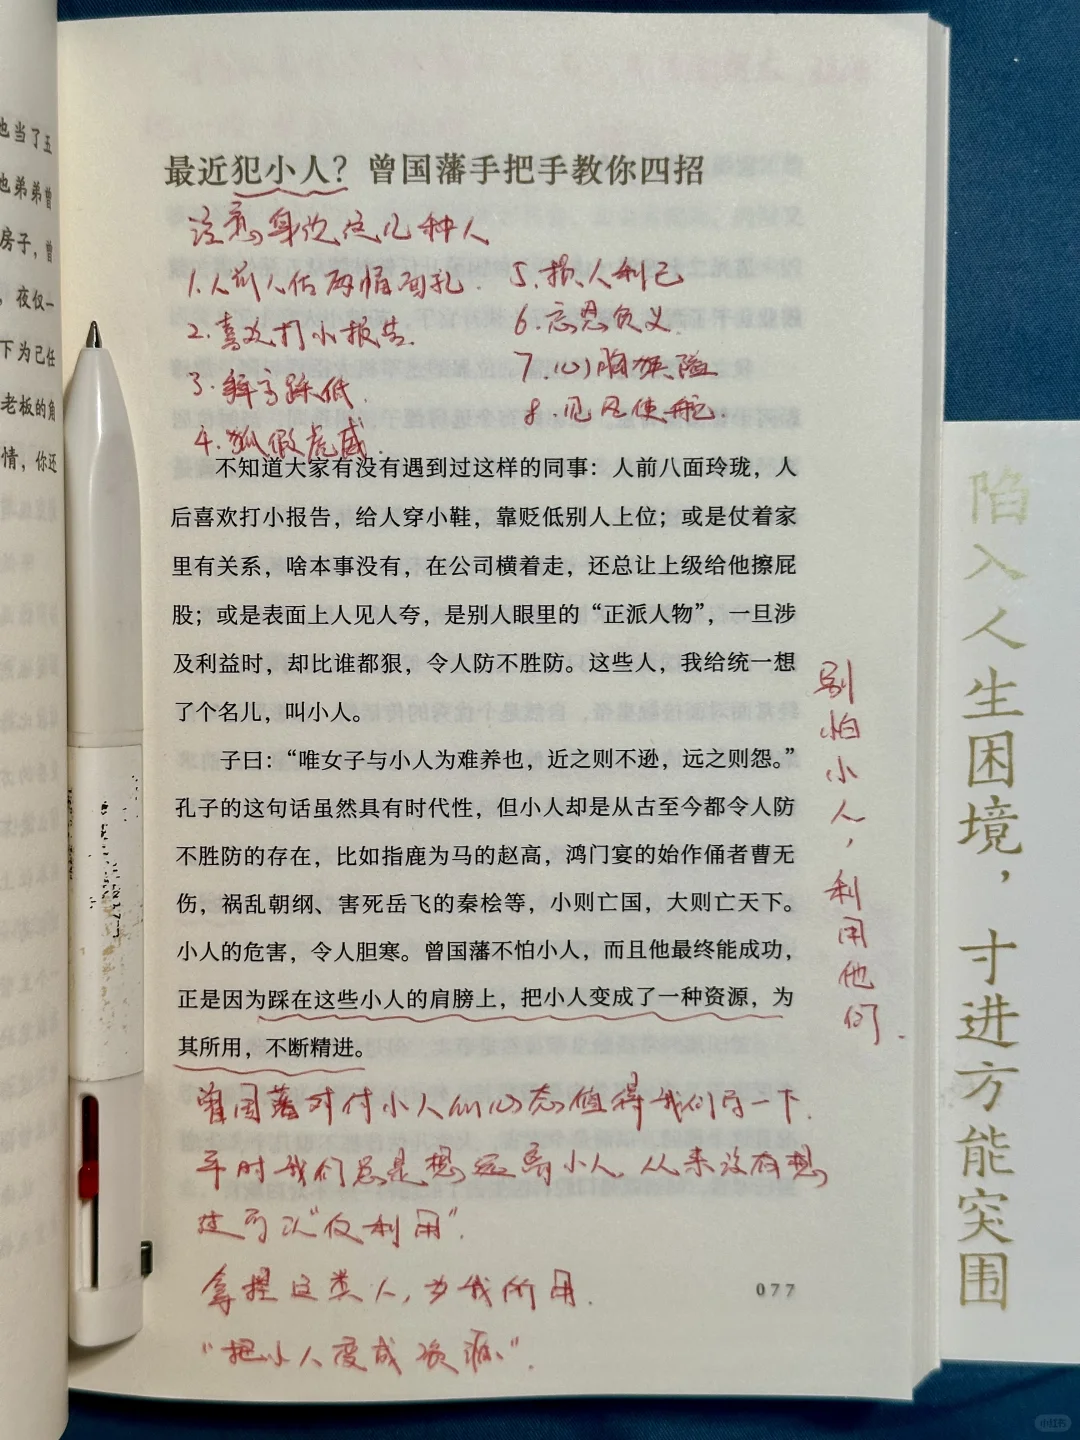 也当了五
他弟弟曾
房子，曾
，夜仅一
下为己任
老板的角
情，你还
最近犯小人？曾国藩手把手教你四招
注意身边这几种人
1.人前人后两幅面孔.
2.喜欢打小报告.
3.捧高踩低.
4.狐假虎威.
5.损人利己
6.忘恩负义.
7.心胸狭隘
8.见风使舵.
不知道大家有没有遇到过这样的同事：人前八面玲珑，人
后喜欢打小报告，给人穿小鞋，靠贬低别人上位；或是仗着家
里有关系，啥本事没有，在公司横着走，还总让上级给他擦屁
股；或是表面上人见人夸，是别人眼里的“正派人物”，一旦涉
及利益时，却比谁都狠，令人防不胜防。这些人，我给统一想
了个名儿，叫小人。
子曰：“唯女子与小人为难养也，近之则不逊，远之则怨。”
孔子的这句话虽然具有时代性，但小人却是从古至今都令人防
不胜防的存在，比如指鹿为马的赵高，鸿门宴的始作俑者曹无
伤，祸乱朝纲、害死岳飞的秦桧等，小则亡国，大则亡天下。
小人的危害，令人胆寒。曾国藩不怕小人，而且他最终能成功，
正是因为踩在这些小人的肩膀上，把小人变成了一种资源，为
其所用，不断精进。
别怕小人，利用他们.
曾国藩对付小人的心态值得我们学一下.
平时我们总是想远离小人.从来没有想
过可以“反利用”.
拿捏这类人,为我所用.
“把小人变成资源”.
077
陷入人生困境，寸进方能突围
小红书